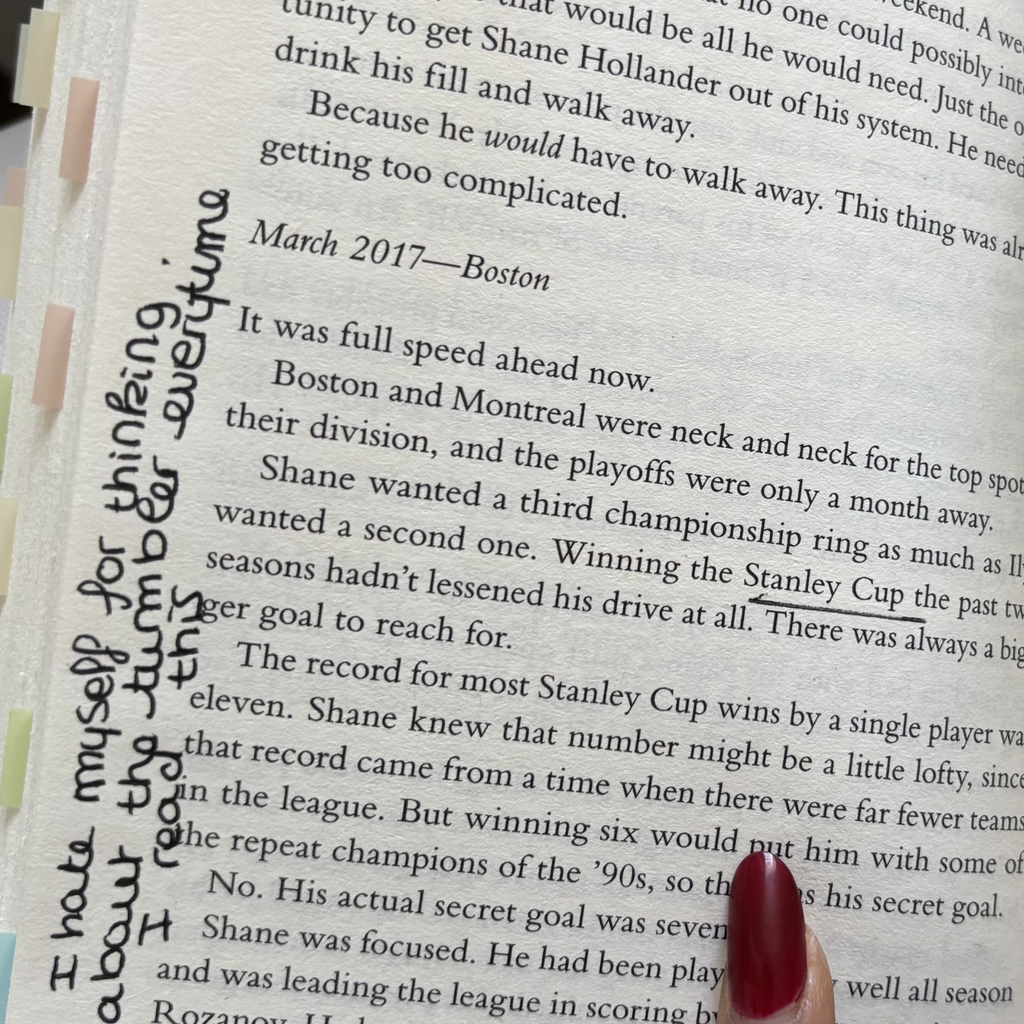 weekend. A we
that would be all he would need. Just the o
no one could possibly int
tunity to get Shane Hollander out of his system. He need
drink his fill and walk away.
Because he would have to walk away. This thing was alr
getting too complicated.
March 2017—Boston
It was full speed ahead now.
Boston and Montreal were neck and neck for the top spot
their division, and the playoffs were only a month away.
Shane wanted a third championship ring as much as Il
wanted a second one. Winning the Stanley Cup the past tw
seasons hadn't lessened his drive at all. There was always a big
ger goal to reach for.
The record for most Stanley Cup wins by a single player wa
eleven. Shane knew that number might be a little lofty, since
that record came from a time when there were far fewer teams
in the league. But winning six would put him with some of
the repeat champions of the '90s, so th s his secret goal.
No. His actual secret goal was seven
Shane was focused. He had been play well all season
and was leading the league in scoring by
Rozanov.
I hate myself for thinking
about the tumbler everytime
I read this